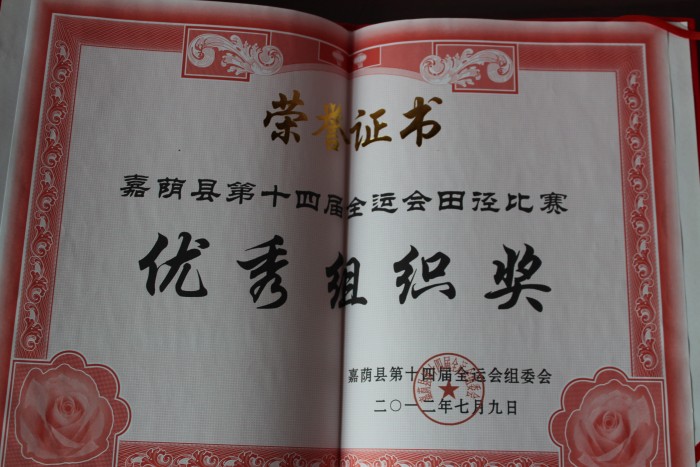 荣誉证书
嘉荫县第十四届全运会田径比赛
优秀组织奖
嘉荫县第十四届全运会组委会
二〇一二年七月九日